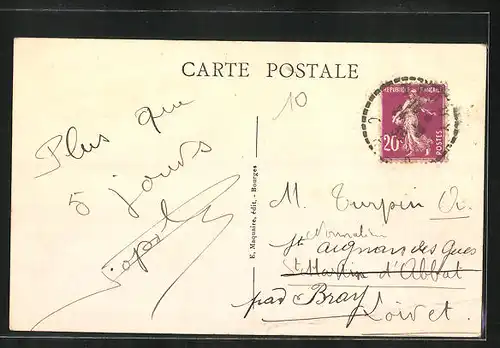 CARTE POSTALE
10
RÉPUBLIQUE FRANÇAISE
20c
POSTES
Plus que
5 jours
E. Maquaire, édit. - Bourges
M. Turpin
St Aignan des Gués
St Martin d'Abbat
par Bray
Loiret.